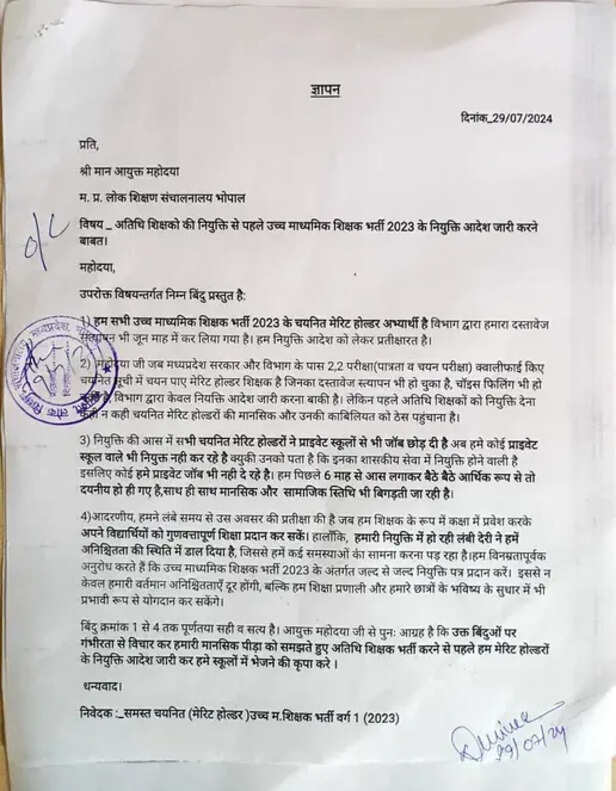 ज्ञापन
दिनांक_29/07/2024
प्रति,
श्री मान आयुक्त महोदया
म. प्र. लोक शिक्षण संचालनालय भोपाल
विषय _ अतिथि शिक्षको की नियुक्ति से पहले उच्च माध्यमिक शिक्षक भर्ती 2023 के नियुक्ति आदेश जारी करने
बाबत।
o/c
महोदया,
उपरोक्त विषयन्तर्गत निम्न बिंदु प्रस्तुत है:
1) हम सभी उच्च माध्यमिक शिक्षक भर्ती 2023 के चयनित मेरिट होल्डर अभ्यार्थी है विभाग द्वारा हमारा दस्तावेज
सत्यापन भी जून माह में कर लिया गया है। हम नियुक्ति आदेश को लेकर प्रतीक्षारत है।
2) महोदया जी जब मध्यप्रदेश सरकार और विभाग के पास 2,2 परीक्षा(पात्रता व चयन परीक्षा) क्वालीफाई किए
चयनित सूची में चयन पाए मेरिट होल्डर शिक्षक है जिनका दस्तावेज स्त्यापन भी हो चुका है, चॉइस फिलिंग भी हो
है, विभाग द्वारा केवल नियक्ति आदेश जारी करना बाकी है। लेकिन पहले अतिथि शिक्षकों को नियुक्ति देना
कही न कही चयनित मेरिट होल्डरों की मानसिक और उनकी काबिलियत को ठेस पहुंचाना है।
3) नियुक्ति की आस में सभी चयनित मेरिट होल्डरों ने प्राइवेट स्कूलों से भी जॉब छोड़ दी है अब हमे कोई प्राइवेट
स्कूल वाले भी नियुक्त नही कर रहे है क्युकी उनको पता है कि इनका शासकीय सेवा में नियुक्ति होने वाली है
इसलिए कोई हमे प्राइवेट जॉब भी नही दे रहे है। हम पिछले 6 माह से आस लगाकर बैठे बैठे आर्थिक रूप से तो
दयनीय हो ही गए है,साथ ही साथ मानसिक और सामाजिक स्तिथि भी बिगड़ती जा रही है।
4)आदरणीय, हमने लंबे समय से उस अवसर की प्रतीक्षा की है जब हम शिक्षक के रूप में कक्षा में प्रवेश करके
अपने विद्यार्थियों को गुणवत्तापूर्ण शिक्षा प्रदान कर सकें। हालाँकि, हमारी नियुक्ति में हो रही लंबी देरी ने हमें
अनिश्चितता की स्थिति में डाल दिया है, जिससे हमें कई समस्याओं का सामना करना पड़ रहा है।हम विनम्रतापूर्वक
अनुरोध करते हैं कि उच्च माध्यमिक शिक्षक भर्ती 2023 के अंतर्गत जल्द से जल्द नियुक्ति पत्र प्रदान करें। इससे न
केवल हमारी वर्तमान अनिश्चितताएँ दूर होंगी, बल्कि हम शिक्षा प्रणाली और हमारे छात्रों के भविष्य के सुधार में भी
प्रभावी रूप से योगदान कर सकेंगे।
बिंदु क्रमांक 1 से 4 तक पूर्णतया सही व सत्य है। आयुक्त महोदया जी से पुनः आग्रह है कि उक्त बिंदुओं पर
गंभीरता से विचार कर हमारी मानसिक पीड़ा को समझते हुए अतिथि शिक्षक भर्ती करने से पहले हम मेरिट होल्डरों
के नियुक्ति आदेश जारी कर हमे स्कूलों में भेजने की कृपा करे ।
धन्यवाद।
निवेदक :_समस्त चयनित (मेरिट होल्डर )उच्च म.शिक्षक भर्ती वर्ग 1 (2023)
29/07/24